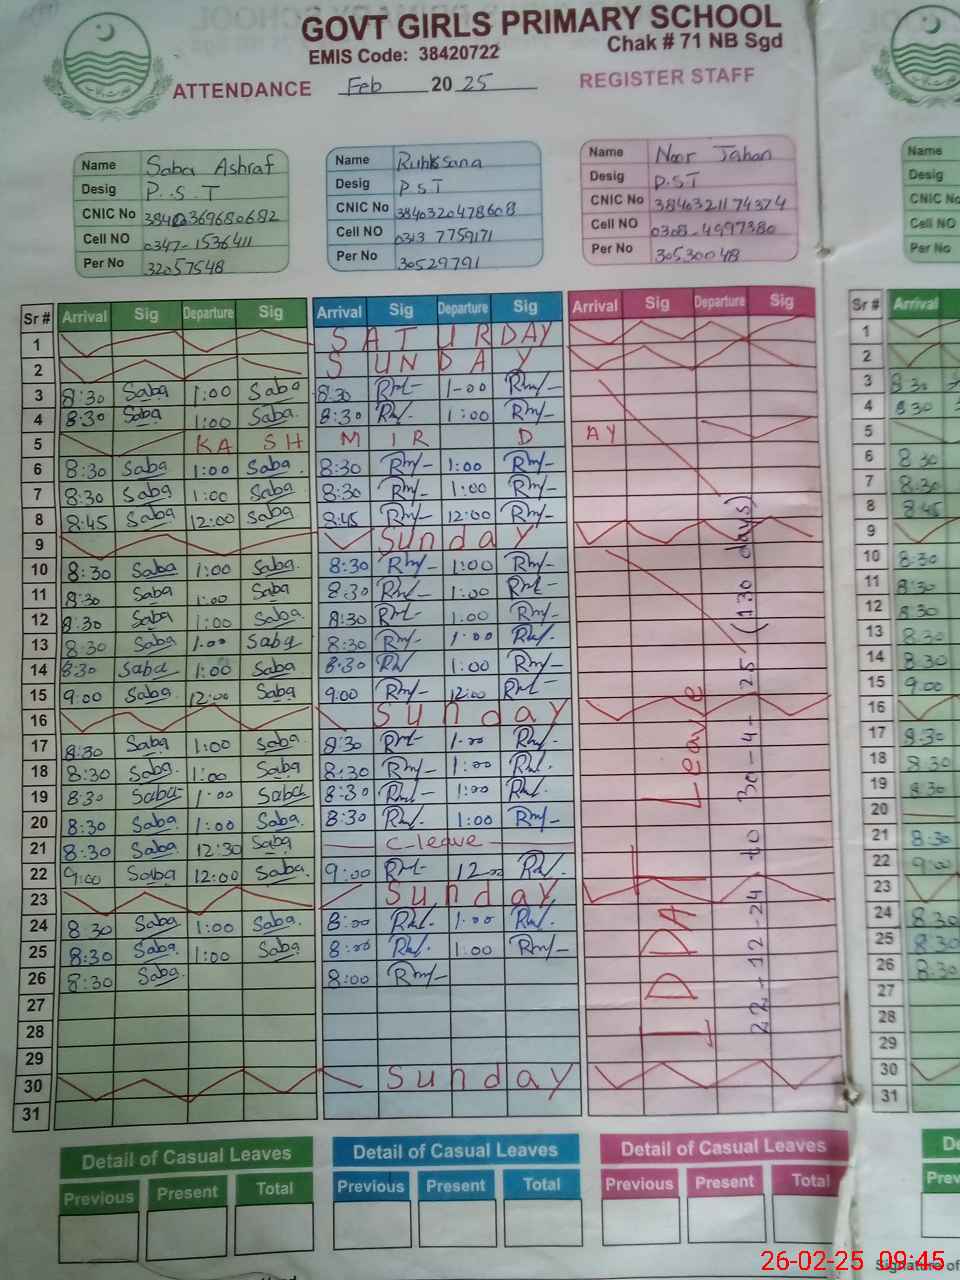 GOVT GIRLS PRIMARY SCHOOL
EMIS Code: 38420722 Chak # 71 NB Sgd
ATTENDANCE Feb 2025 REGISTER STAFF
Name Saba Ashraf
Desig P.S.T
CNIC No
Cell NO 0347-1536411
Per No 32057548
Name Rukhsana
Desig P.S.T
CNIC No 3840320478608
Cell NO 0313 7759171
Per No 30529791
Name Noor Jahan
Desig P.S.T
CNIC No 3840321174374
Cell NO 0308-4997380
Per No 30530048
Name
Desig
CNIC No
Cell NO
Per No
Sr # Arrival Sig Departure Sig Arrival Sig Departure Sig Arrival Sig Departure Sig Sr # Arrival
1 SATURDAY 1
2 SUNDAY 2
3 8:30 Saba 1:00 Saba 8:30 Rm/- 1-00 Rm/- 3 8 30
4 8:30 Saba 1:00 Saba. 8:30 Rm/. 1:00 Rm/- 4 8 30
5 KASHMIR DAY 5
6 8:30 Saba 1:00 Saba. 8:30 Rm/- 1:00 Rm/- 6 8 30
7 8:30 Saba 1:00 Saba 8:30 Rm/- 1:00 Rm/- 7 8:30
8 8:45 Saba 12:00 Saba 8:45 Rm/- 12:00 Rm/- 8 8:45
9 Sunday 9
10 8:30 Saba 1:00 Saba. 8:30 Rm/- 1:00 Rm/- 10 8:30
11 8:30 Saba 1:00 Saba 8:30 Rm/- 1:00 Rm/- 11 8:30
12 8:30 Saba 1:00 Saba. 8:30 Rm/- 1.00 Rm/- 12 8:30
13 8:30 Saba 1.00 Saba 8:30 Rm/- 1:00 Rm/. 13 8:30
14 8:30 Saba 1:00 Saba 8:30 Rm/ 1:00 Rm/- 14 8:30
15 9:00 Saba. 12:00 Saba 9:00 Rm/- 12:00 Rm/- 15 9:00
16 Sunday 16
17 8:30 Saba 1:00 Saba. 8:30 Rm/- 1.00 Rm/. 17 8:30
18 8:30 Saba. 1:00 Saba 8:30 Rm/- 1:00 Rm/. 18 8:30
19 8:30 Saba 1:00 Saba 8:30 Rm/- 1:00 Rm/. 19 8:30
20 8:30 Saba. 1:00 Saba. 8:30 Rm/. 1:00 Rm/- 20
21 8:30 Saba. 12:30 Saba C-leave 21 8:30
22 9:00 Saba 12:00 Saba. 9:00 Rm/- 12:00 Rm/. 22 9:00
23 Sunday 23
24 8 30 Saba 1:00 Saba. 8:00 Rm/. 1.00 Rm/. 24 8:30
25 8:30 Saba. 1:00 Saba 8:00 Rm/. 1:00 Rm/- 25 8:30
26 8:30 Saba. 8:00 Rm/- 26 8:30
27 27
28 28
29 29
30 Sunday 30
31 31
IDDAT Leave
22-12-24 to 30-4-25 (130 days)
Detail of Casual Leaves Detail of Casual Leaves Detail of Casual Leaves
Previous Present Total Previous Present Total Previous Present Total
26-02-25 09:45